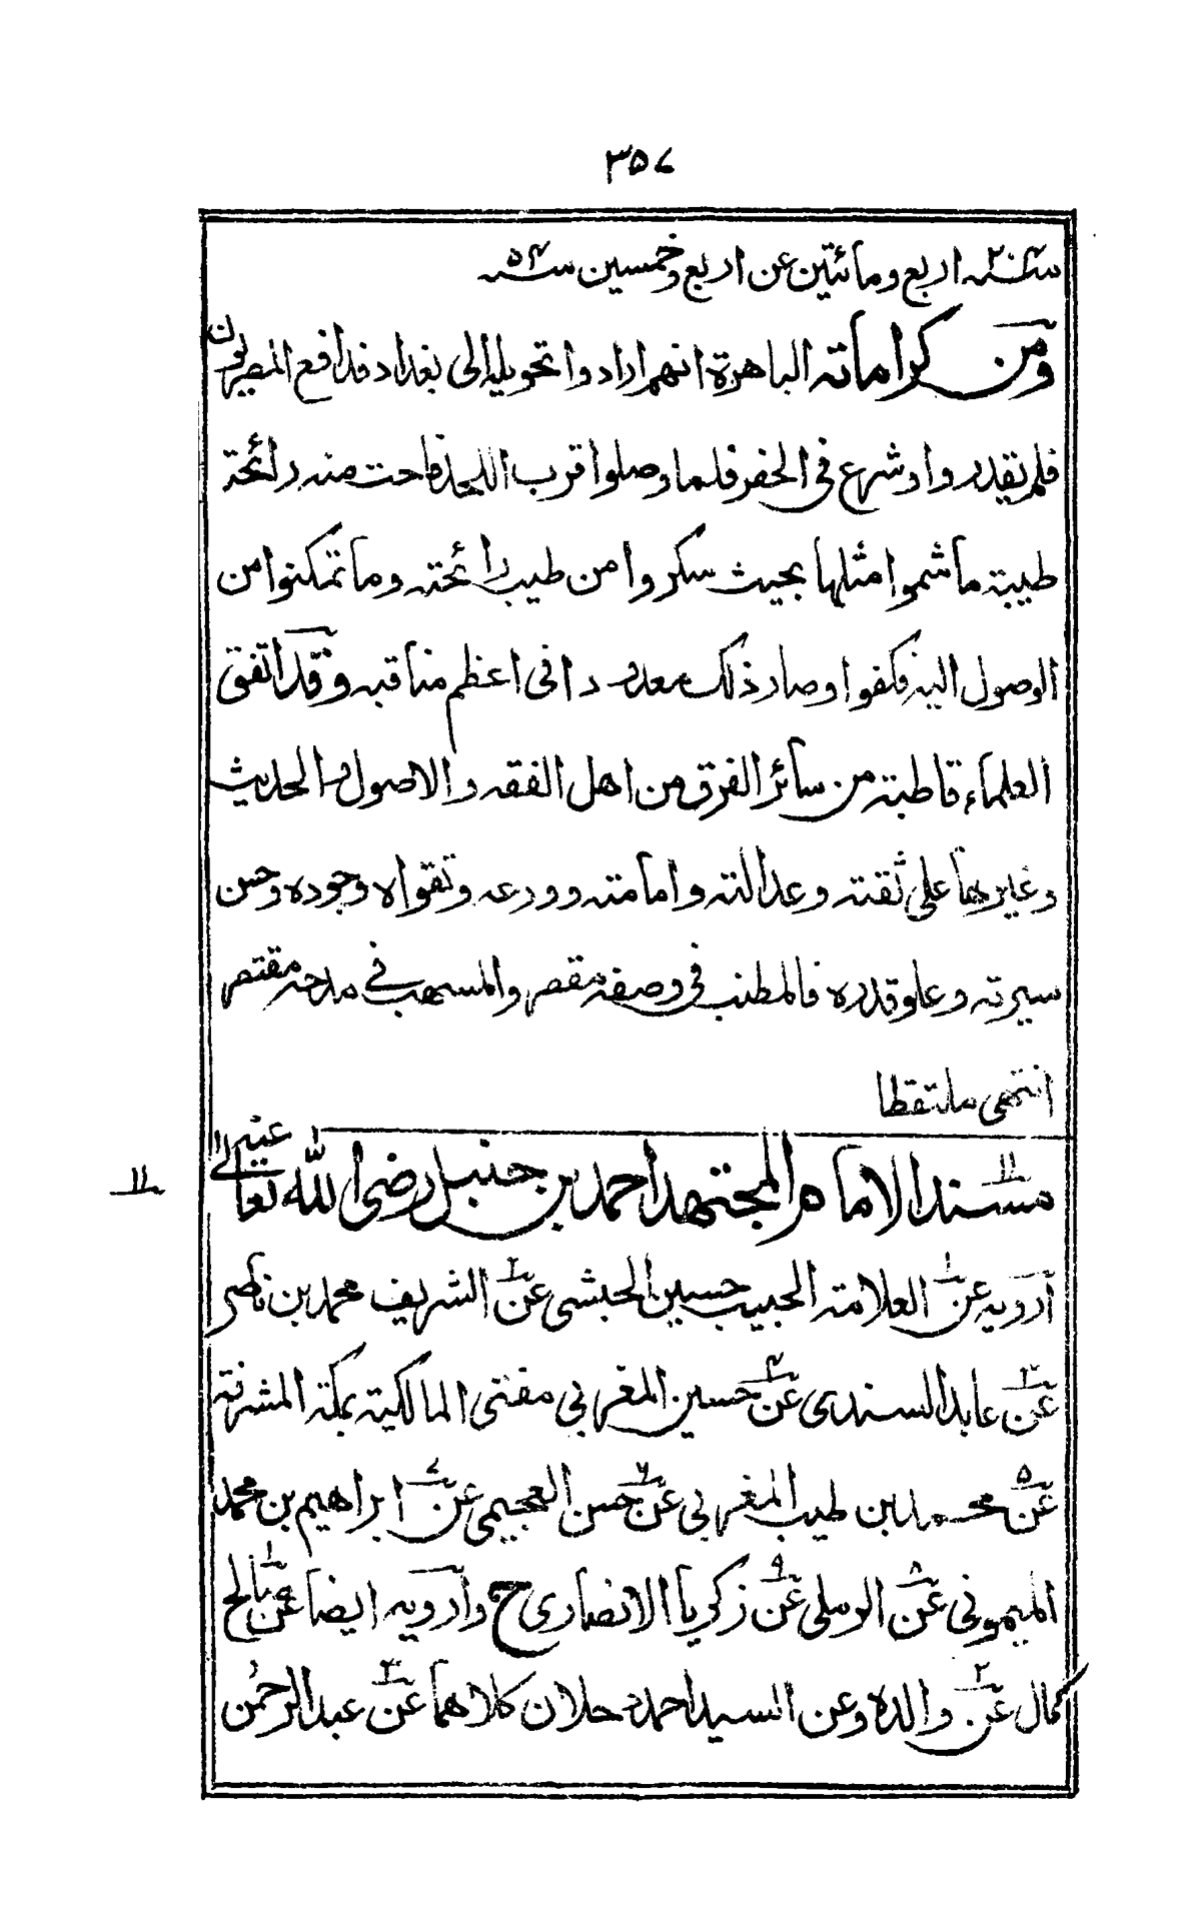 ۳۵۷
سنة ۲۰۴ اربع ومائتين عن اربع وخمسين سنة ۵۴
ومن كراماته الباهرة انهم ارادوا تحويله الى بغداد فدافع المصريون
فلم يقدروا وشرع فى الحفر فلما وصلوا قرب اللحد فاحت منه رائحة
طيبة ما شموا مثلها بحيث سكروا من طيب رائحته وما تمكنوا من
الوصول اليه فكفوا وصار ذلك معدودا فى اعظم مناقبه وقد اتفق
العلماء قاطبة من سائر الفرق من اهل الفقه والاصول والحديث
وغيرهما على ثقته وعدالته وامامته وورعه وتقواه وجوده وحسن
سيرته وعلو قدره فالمطنب فى وصفه مقصر والمسهب فى مدحه مقتصر
انتهى ملتقطا
۱۱ مسند الامام المجتهد احمد بن حنبل رضى الله تعالى عنه ۱۱
أرويه عن ۱ العلامة الحبيب حسين الحبشى عن ۲ الشريف محمد بن ناصر
عن ۳ عابد السندى عن ۴ حسين المغربي مفتى المالكية بمكة المشرفة
عن ۵ محمد بن طيب المغربي عن ۶ حسن العجيمى عن ۷ ابراهيم بن محمد
الميمونى عن ۸ الرملى عن ۹ زكريا الانصارى ح وأرويه ايضا عن ۱ صالح
كمال عن ۲ والده وعن السيد احمد دحلان كلاهما عن ۳ عبد الرحمٰن